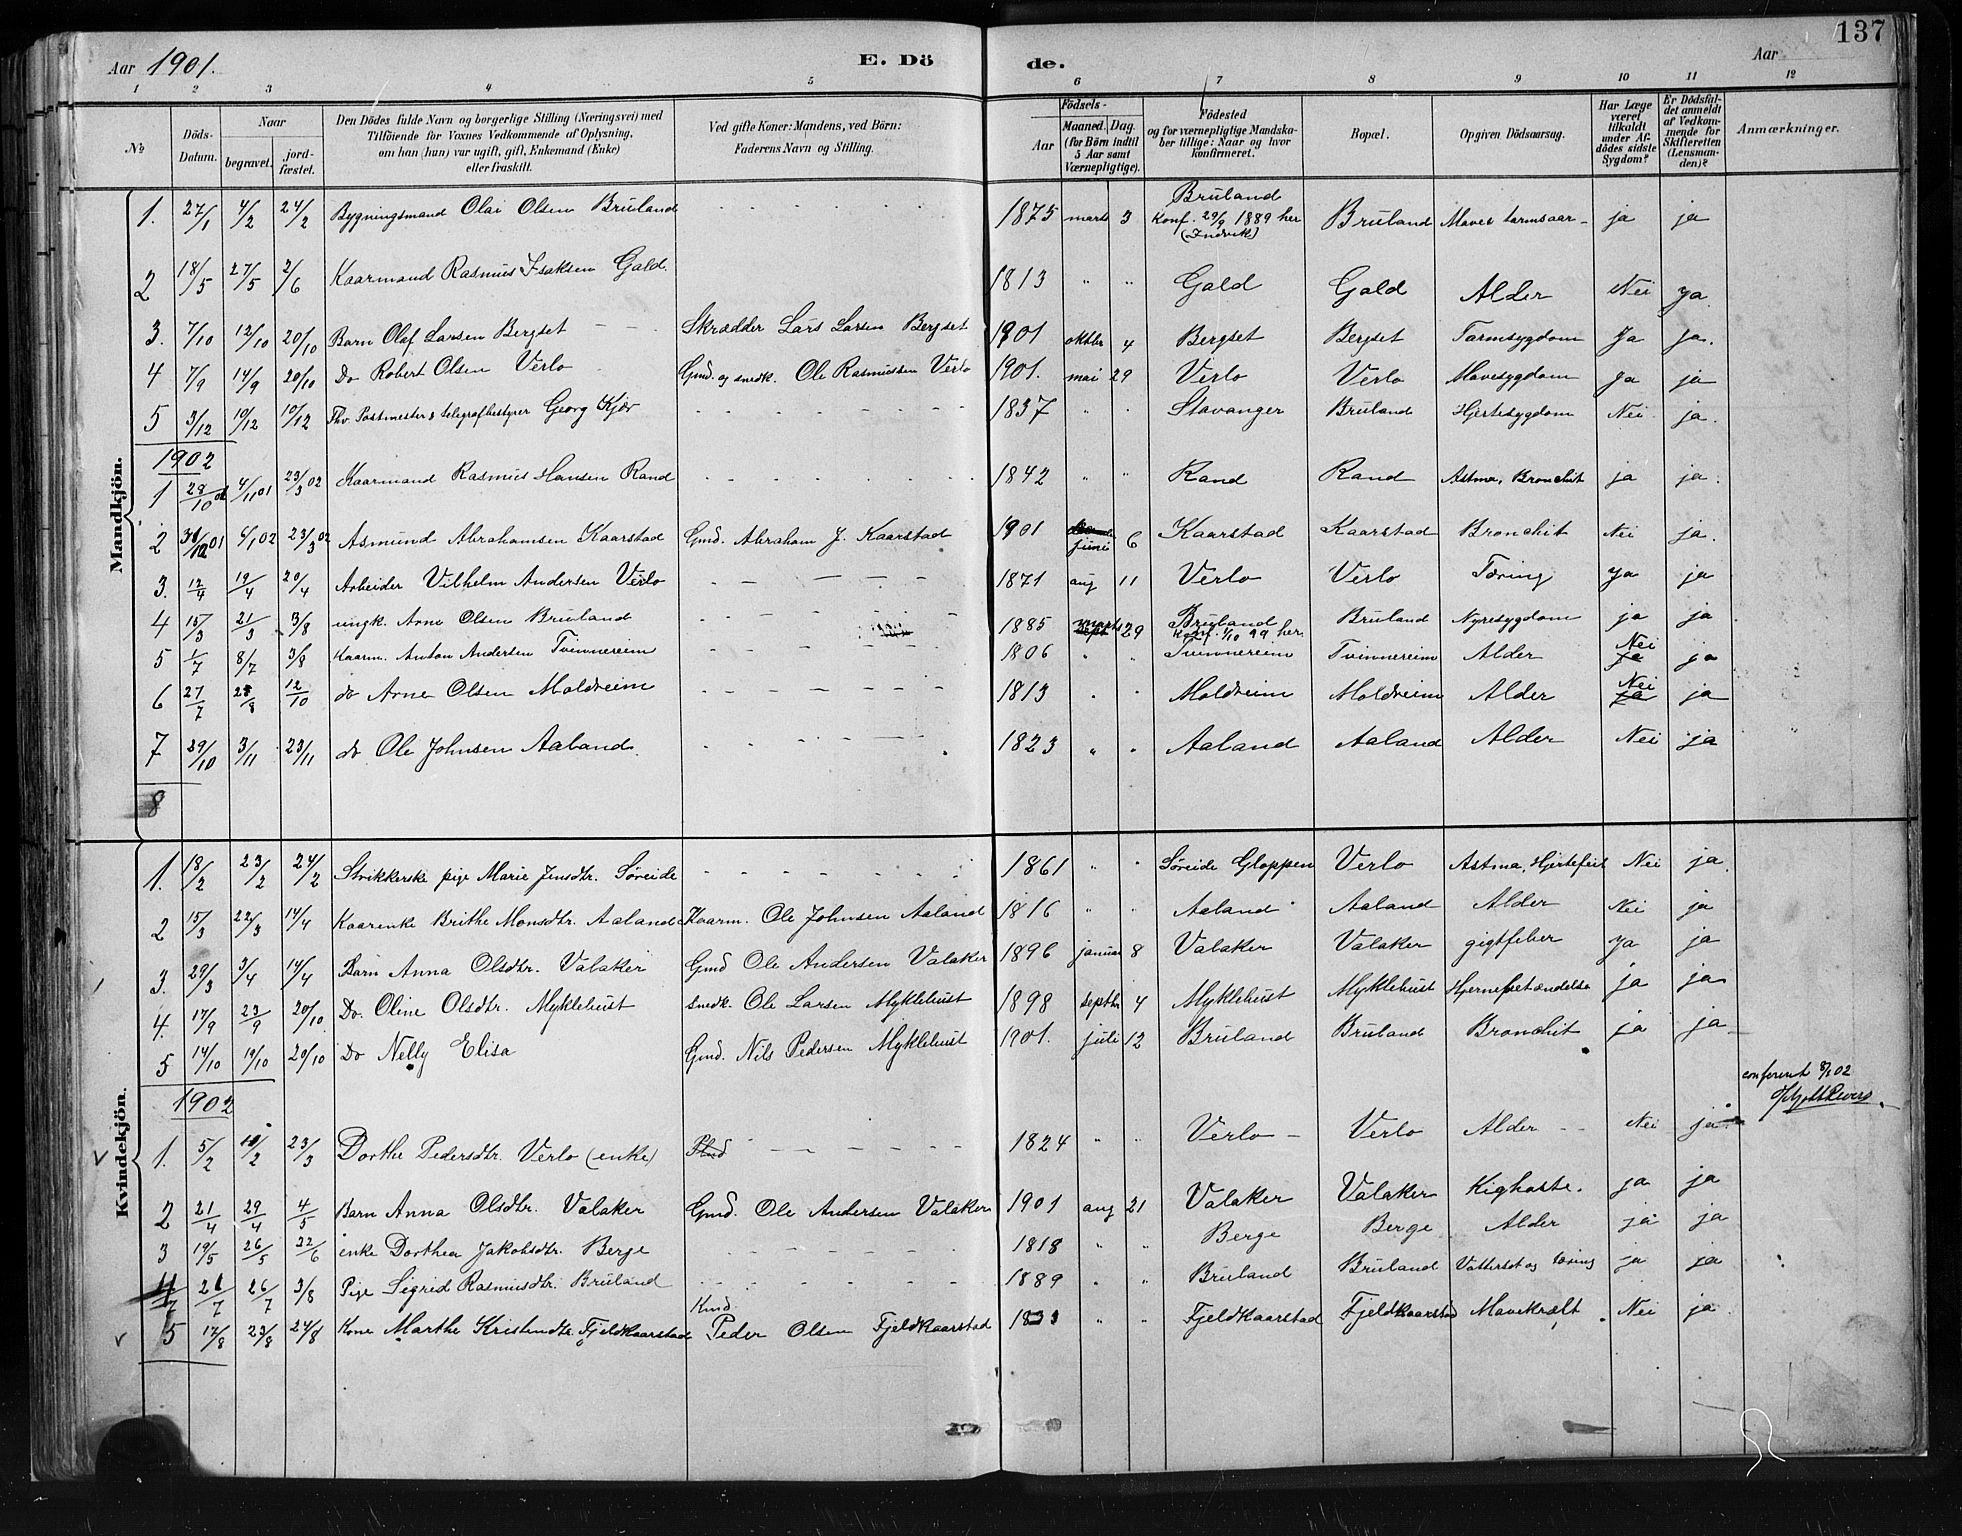 137
Aar 1901. E. Dö de. Aar
1 2 3 4 5 6 7 8 9 10 11 12
№ Döds-Datum. Naar begravet. jordfæstet. Den Dödes fulde Navn og borgerlige Stilling (Næringsvei) med Tilföiende for Voxnes Vedkommende af Oplysning, om han (hun) var ugift, gift, Enkemand (Enke) eller fraskilt. Ved gifte Koner: Mandens, ved Börn: Faderens Navn og Stilling. Födsels- Aar Maaned. Dag. (for Börn indtil 5 Aar samt Værnepligtige). Födested og for værnepligtige Mandskaber tillige: Naar og hvor konfirmeret. Bopæl. Opgiven Dödsaarsag. Har Læge været tilkaldt under Afdödes sidste Sygdom? Er Dödsfaldet anmeldt af Vedkommende for Skifteretten (Lensmanden)? Anmærkninger.
Mandkjön.
1. 27/1 4/2 24/2 Bygningsmand Olai Olsen Bruland 1875 marts 3 Bruland Konf. 29/9 1889 her (Indvik) Bruland Mave tarmsaar ja ja
2 18/5 27/5 2/6 Kaarmand Rasmus Isaksen Gald. 1813 " " Gald Gald Alder Nei ja
3. 7/10 12/10 20/10 Barn Olaf Larsen Bergset Skrædder Lars Larsen Bergset 1901 oktbr 4 Bergset Bergset Tarmsygdom Ja ja.
4 7/9 14/9 20/10 Do Robert Olsen Verlo Gmd. og snedk. Ole Rasmussen Verlo 1901. mai 29 Verlo Verlo Mavesygdom Ja ja
5 3/12 10/12 10/12 Fhv. Postmester & telegrafbestyrer Georg Kjær 1837 " " Stavanger Bruland Hjertesygdom Nei ja.
1902
1 29/10 01 4/11 01 23/3 02 Kaarmand Rasmus Hansen Rand 1842 " " Rand Rand Astma, Bronchit ja ja.
2 31/12 01 6/1 02 23/3 02 Asmund Abrahamsen Kaarstad Gmd. Abraham J. Kaarstad 1901 juni 6 Kaarstad Kaarstad Bronchit Nei ja.
3. 12/4 19/4 20/4 Arbeider Vilhelm Andersen Verlo 1871 aug 11 Verlo Verlo Tæring Ja ja
4 15/3 21/3 3/8 ungk. Arne Olsen Bruland 1885 marts sept 29 Bruland Konf. 1/10 99 her. Bruland Nyresygdom ja ja
5 1/7 8/7 3/8 Kaarm. Anton Andersen Tvinnereim 1806 " " Tvinnereim Tvinnereim Alder Nei ja ja
6 27/7 2/8 12/10 do Arne Olsen Moldreim 1813 " " Moldreim Moldreim Alder Nei ja ja
7 29/10 3/11 23/11 do Ole Johnsen Aaland 1823 " " Aaland Aaland Alder Nei ja
8
Kvindekjön.
1. 18/2 23/2 24/2 Strikkerske pige Marie Jensdtr. Søreide 1861 " " Søreide Gloppen Verlo Astma, Hjertefeil Nei ja
2 15/3 22/3 14/4 Kaarenke Brithe Monsdtr. Aaland Kaarm. Ole Johnsen Aaland 1816 " " Aaland Aaland Alder Nei ja
3. 29/3 3/4 14/4 Barn Anna Olsdtr. Valaker Gmd Ole Andersen Valaker 1896 januar 8 Valaker Valaker gigtfeber ja ja
4. 17/9 23/9 20/10 Do. Oline Olsdtr. Myklebust snedk. Ole Larsen Myklebust 1898 septbr 4 Myklebust Myklebust Hjernebetændelse ja ja
5 14/10 19/10 20/10 Do Nelly Elisa Gmd. Nils Pedersen Myklebust 1901. juli 12 Bruland Bruland Bronchit ja ja
conferert 8/1 02
1902
1. 5/2 10/2 23/3 Dorthe Pedersdtr. Verlo (enke) 1824 " " Verlo Verlo Alder Nei ja
2 21/4 29/4 4/5 Barn Anna Olsdtr. Valaker Gmd. Ole Andersen Valaker 1901 aug 21 Valaker Valaker Kighoste. ja ja
3 19/5 26/5 22/6 enke Dorthea Jakobsdtr. Berge 1818 " " Berge Berge Alder ja ja
4 26/7 3/8 Pige Sigrid Rasmusdtr. Bruland 1889 " " Bruland Bruland Vattersot og tæring ja ja
5 17/8 23/8 24/8 Kone Marthe Kristensdtr. Fjeldkaarstad Kmd. Peder Olsen Fjeldkaarstad " " Fjeldkaarstad Fjeldkaarstad Mavekræft Nei ja